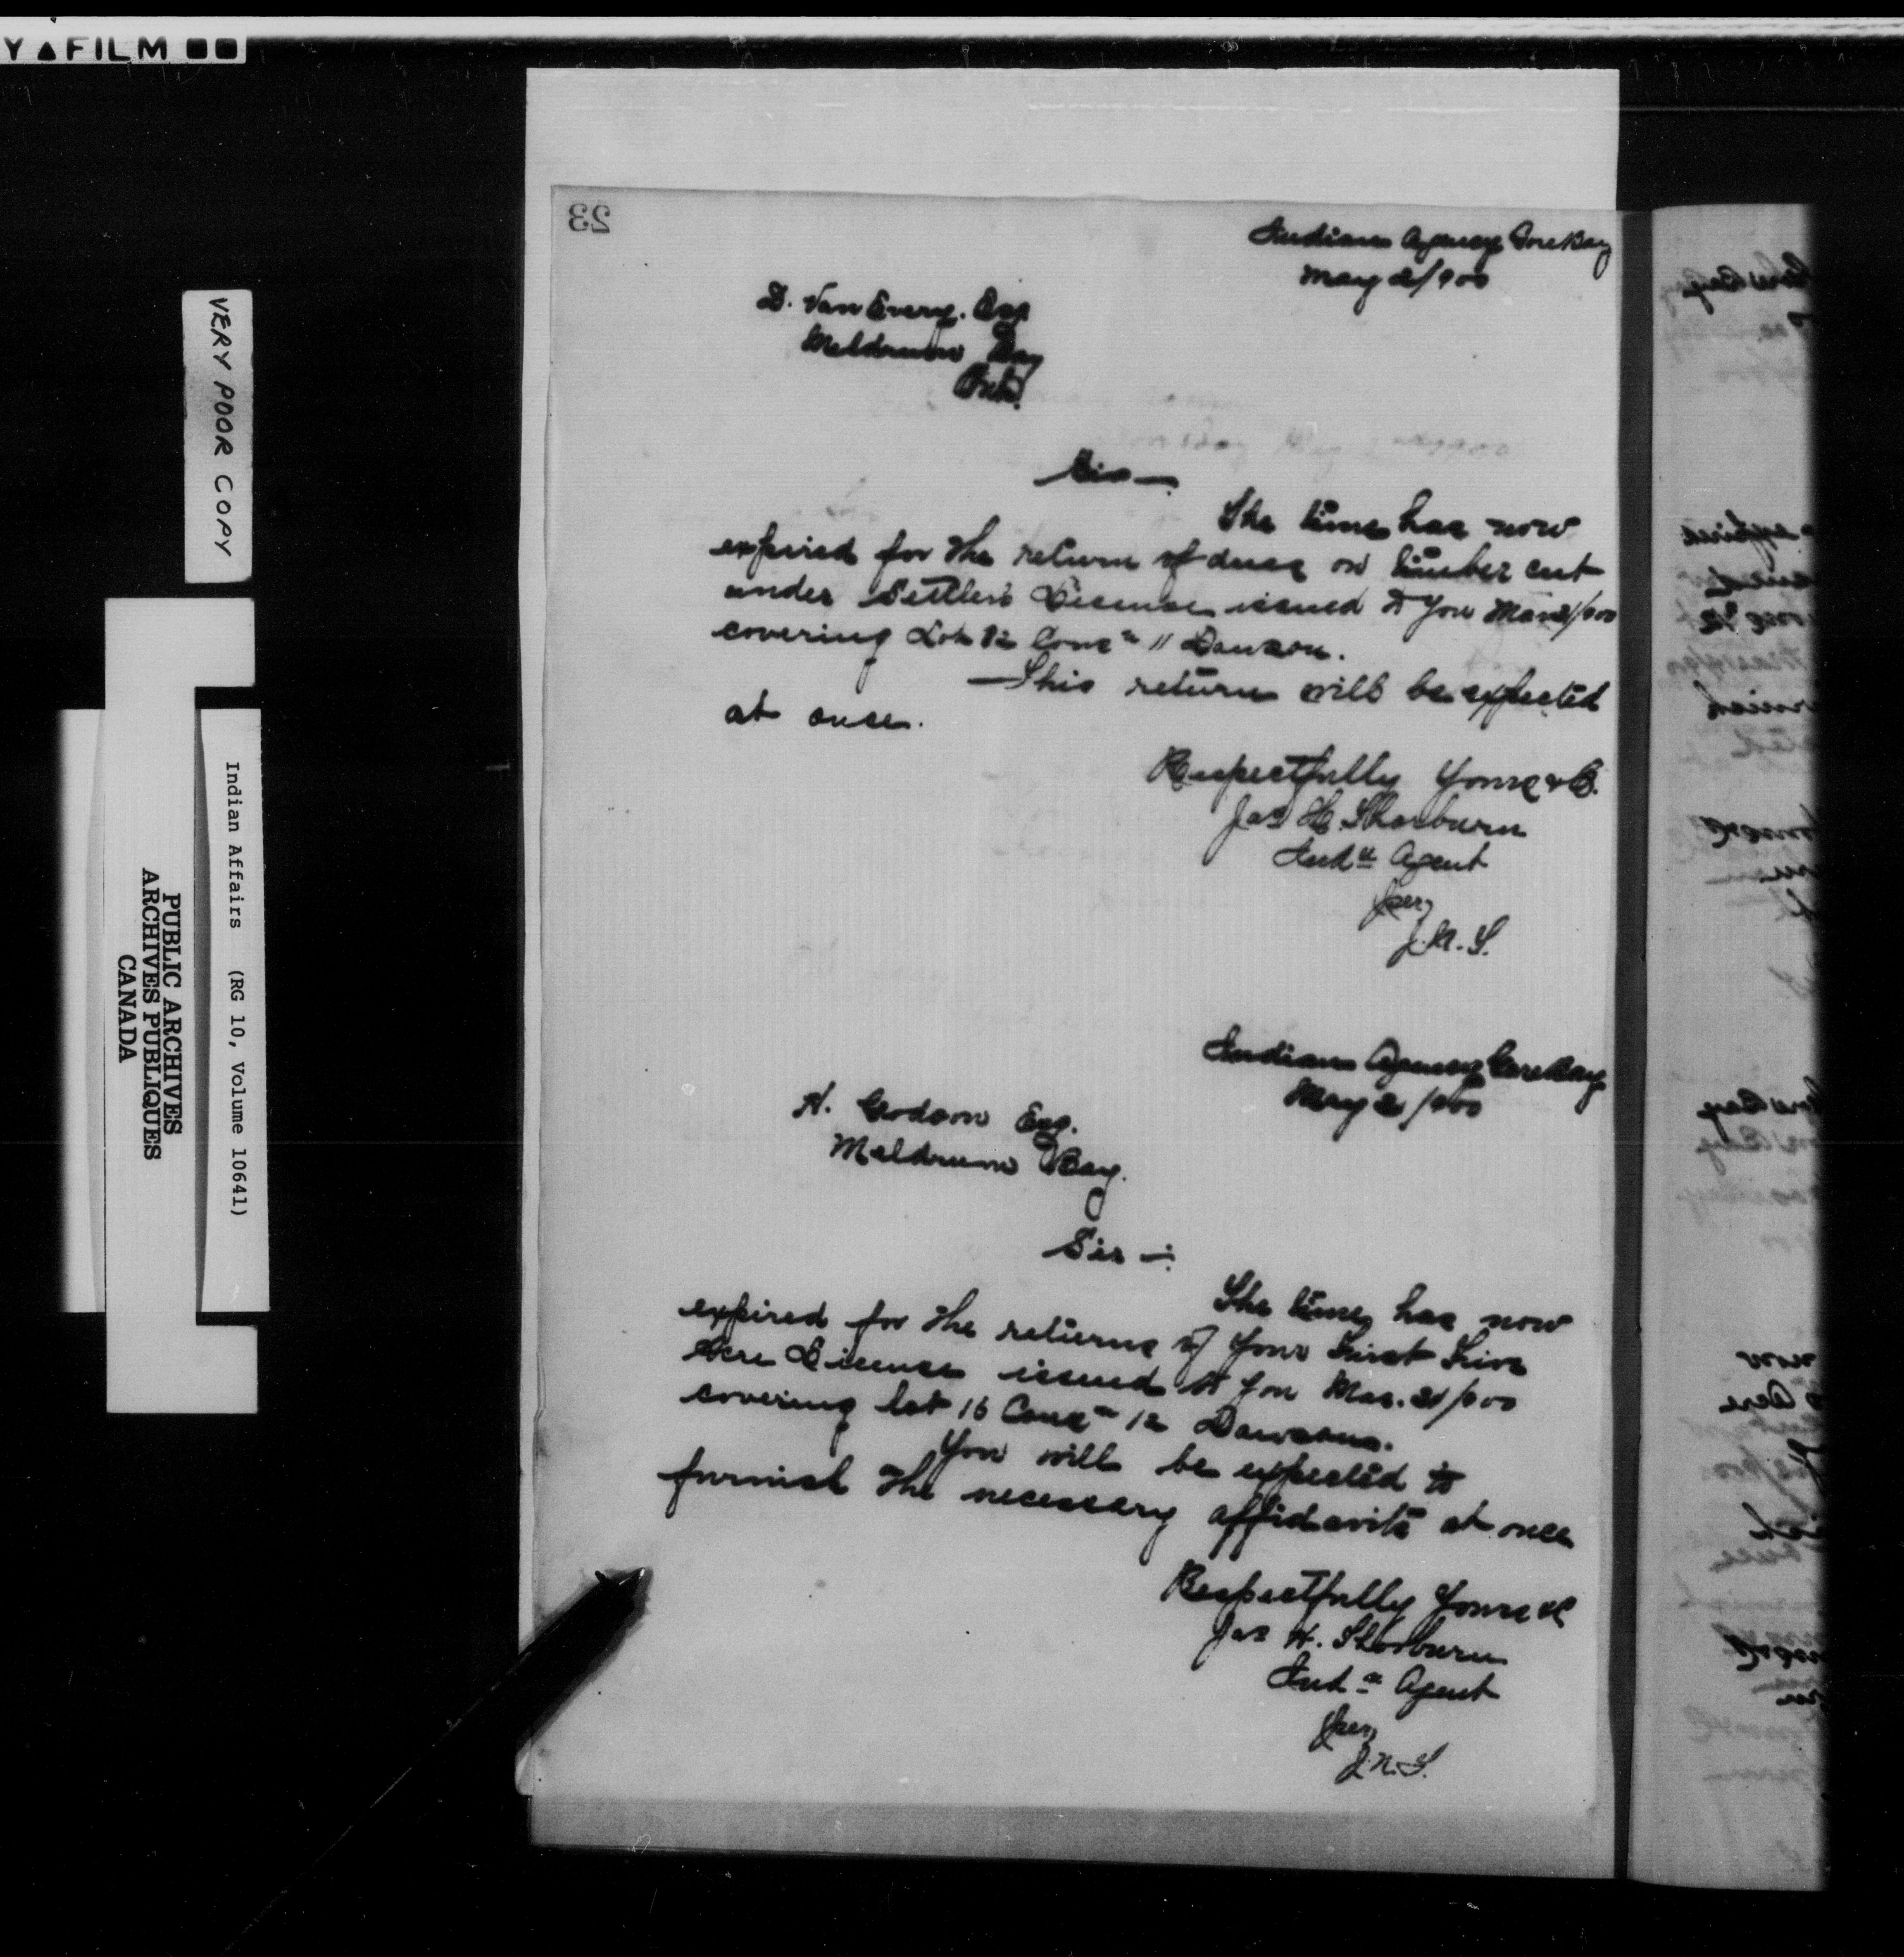 Y▲FILM
VERY POOR COPY
Indian Affairs (RG 10, Volume 10641)
PUBLIC ARCHIVES
ARCHIVES PUBLIQUES
CANADA
23
Indian Agency Gore Bay
May 2/900
D. Van Every. Esq
Meldrum Bay
Ont.
Sir —
The time has now
expired for the return of dues on timber cut
under Settlers License issued to you Mar 21/900
covering Lot 12 Conc n 11 Dawson.
This return will be expected
at once.
Respectfully Yours &C.
Jas H. Thorburn
Ind n Agent
per
J.N.T.
Indian Agency Gore Bay
May 2/900
Esq.
Meldrum Bay.
Sir —:
The time has now
expired for the returns of your First Five
Acre License issued to you Mar. 21/900
covering lot 16 Conc n 12 Dawson.
You will be expected to
furnish the necessary affidavits at once
Respectfully Yours &C
Jas H. Thorburn
Ind n Agent
per
J.N.T.